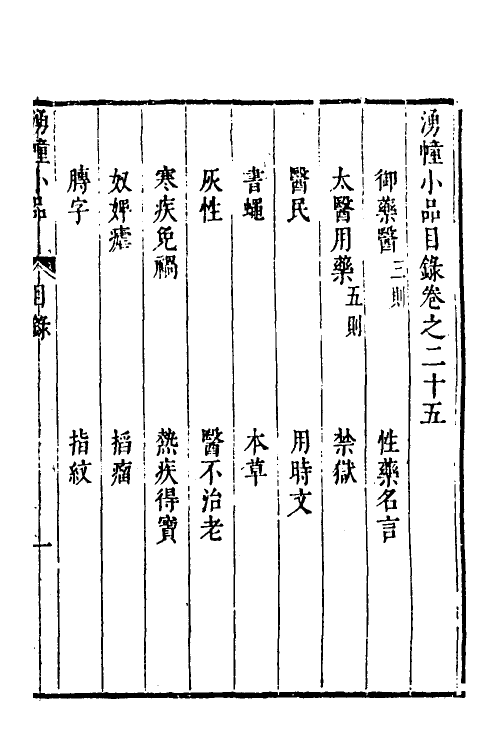 湧幢小品目錄卷之二十五
御藥醫三則 性藥名言
太醫用藥五則 禁獄
醫民 用時文
書蠅 本草
灰性 醫不治老
寒疾免禍 熱疾得寶
奴婢瘧 搯瘤
腾字 指紋
湧幢小品 目錄 一